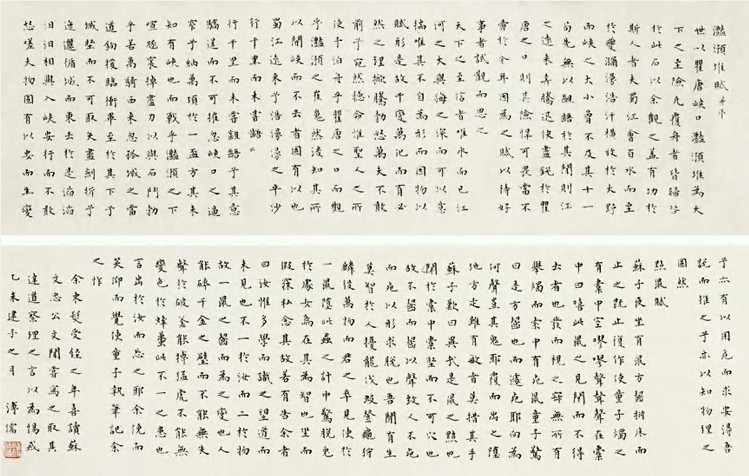 灩澦堆賦并序
世以瞿唐峽口灩澦堆為天
下之至險凡覆舟者皆歸咎
於此石以余觀之蓋有功於
斯人者夫蜀江會百水而至
於夔瀰漫浩汗橫放於大野
而峽之大小曾不及其十一
苟先無以齟齬於其間則江
之遠來奔騰迅快盡銳於瞿
唐之口則其險悍可畏當不
啻於今耳因為之賦以待好
事者試觀而思之
天下之至信者唯水而已江
河之大與海之深而可以意
揣唯其不自為形而因物以
賦形是故千變萬化而有必
然之理掀騰勃怒萬夫不敢
前兮宛然聽命惟聖人之所
使予泊舟乎瞿唐之口而觀
乎灩澦之崔嵬然後知其所
以開峽而不去者固有以也
蜀江遠來兮浩漫漫之平沙
行千里而未嘗齬
行千里而未嘗齟齬兮其意
驕逞而不可摧忽峽口之逼
窄兮納萬頃於一盃方其未
知有峽也而戰乎灩澦之下
喧豗震掉盡力以與石鬥勃
乎若萬騎西來忽孤城之當
道鉤援臨衝畢至於其下兮
城堅而不可取矢盡劍折兮
迤邐循城而東去於是滔滔
汩汩相與入峽安行而不敢
怒嗟夫物固有以安而生變
兮亦有以用危而求安得吾
說而推之兮亦以知物理之
固然
黠鼠賦
蘇子夜坐有鼠方齧拊床而
止之既止復作使童子燭之
有橐中空嘐嘐聱聱聲在橐
中曰嘻此鼠之見閉而不得
去者也發而視之寂無所有
舉燭而索中有死鼠童子驚
曰是方齧也而遽死耶向為
何聲豈其鬼耶覆而出之墮
地乃走雖有敏者莫措其手
蘇子歎曰異哉是鼠之黠也
閉於橐中橐堅而不可穴也
故不齧而齧以聲致人不死
而死以形求脫也吾聞有生
莫智於人擾龍伐蛟登龜狩
麟役萬物而君之卒見使於
一鼠墮此蟲之計中驚脫兔
於處女烏在其為智也坐而
假寐私念其故若有告余者
曰汝惟多學而識之望道而
未見也不一於汝而二於物
故一鼠之齧而為之變也人
能碎千金之璧而不能無失
聲於破釜能搏猛虎不能無
變色於蜂蠆此不一之患也
言出於汝而忘之耶余俛而
笑仰而覺使童子執筆記余
之作
余束髮受經之年喜讀蘇
文忠公文閒嘗寫之取其
達道察理之言以為惕戒
乙未建子之月 溥儒